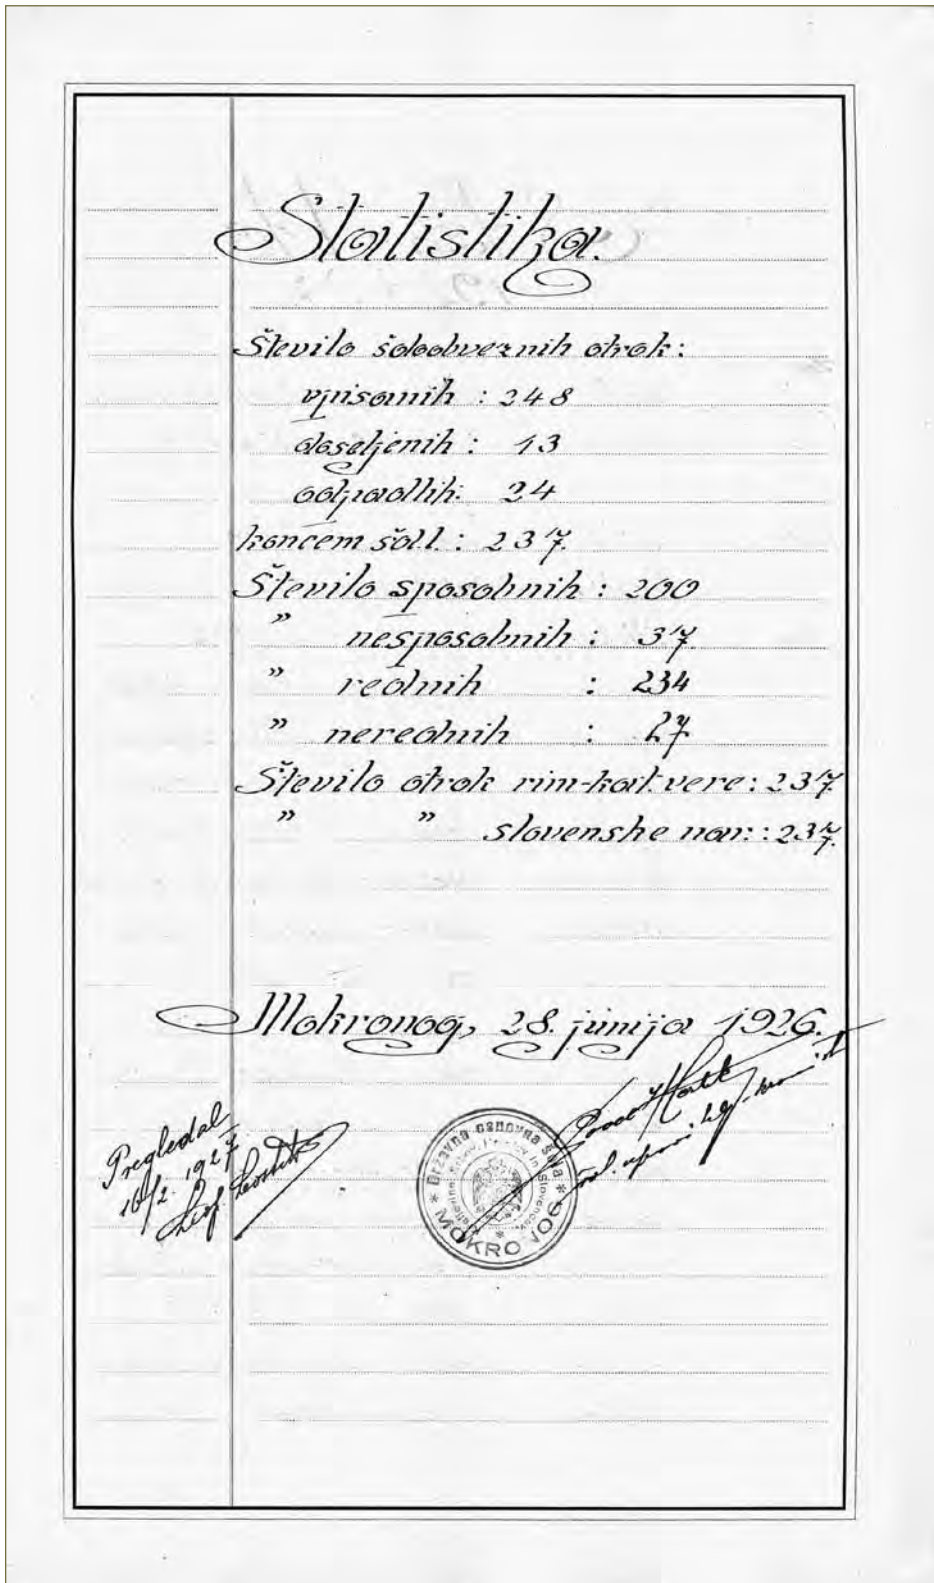 Statistika.
Število šoloobveznih otrok:
vpisanih : 248
doseljenih : 13
odpadlih: 24
koncem šol.l. : 237.
Število sposobnih : 200
" nesposobnih : 37.
" rednih : 234
" nerednih : 27
Število otrok rim-kat. vere : 237.
" " slovenske nar. : 237.
Mokronog, 28. junija 1926.
Pregledal
16/2. 1927
Državna osnovna šola
MOKRONOG